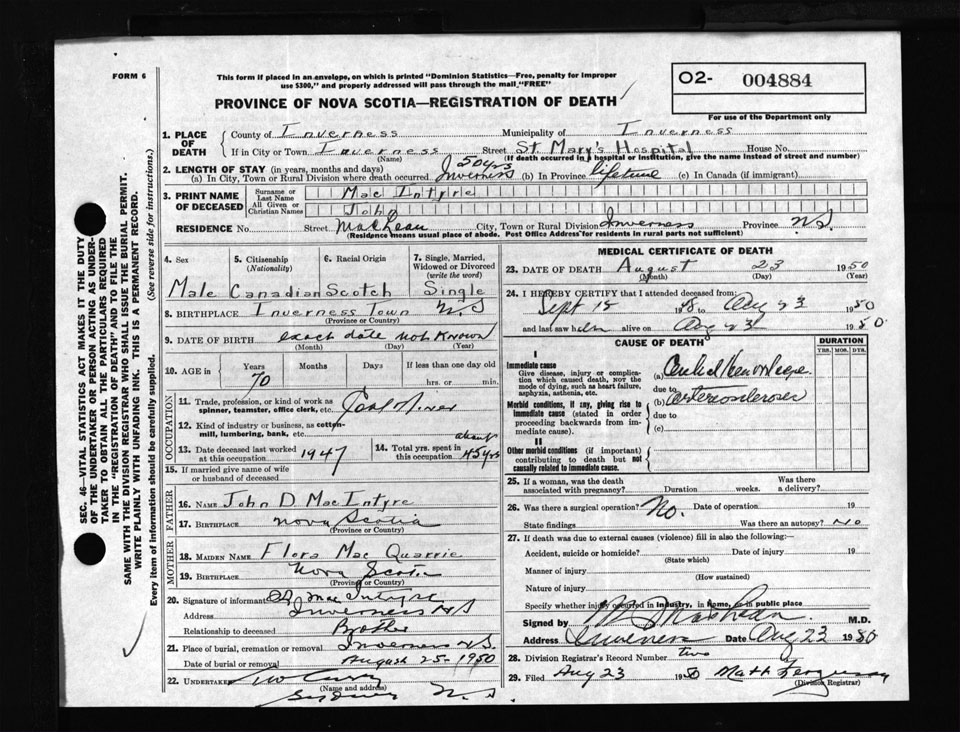 FORM 6
This form if placed in an envelope, on which is printed "Dominion Statistics—Free, penalty for improper
use $300," and properly addressed will pass through the mail "FREE"
O2- 004884
For use of the Department only
PROVINCE OF NOVA SCOTIA—REGISTRATION OF DEATH
1. PLACE OF DEATH
County of Inverness Municipality of Inverness
If in City or Town Inverness Street St. Mary's Hospital House No.
(Name) (If death occurred in a hospital or institution, give the name instead of street and number)
2. LENGTH OF STAY (in years, months and days)
(a) In City, Town or Rural Division where death occurred 50 yrs Inverness (b) In Province lifetime (c) In Canada (if immigrant)
3. PRINT NAME OF DECEASED
Surname or Last Name Mac Intyre
All Given or Christian Names John
RESIDENCE No. Street MacLean City, Town or Rural Division Inverness Province N.S
(Residence means usual place of abode. Post Office Address for residents in rural parts not sufficient)
4. Sex 5. Citizenship (Nationality) 6. Racial Origin 7. Single, Married, Widowed or Divorced (write the word)
Male Canadian Scotch Single
8. BIRTHPLACE Inverness Town N.S
(Province or Country)
9. DATE OF BIRTH exact date not known
(Month) (Day) (Year)
10. AGE in Years Months Days If less than one day
70 hrs. or min.
OCCUPATION
11. Trade, profession, or kind of work as
spinner, teamster, office clerk, etc. Coal Miner
12. Kind of industry or business, as cotton-
mill, lumbering, bank, etc.
13. Date deceased last worked at this occupation 1947
14. Total yrs. spent in this occupation about 45 yrs
15. If married give name of wife
or husband of deceased
FATHER
16. NAME John D. Mac Intyre
17. BIRTHPLACE Nova Scotia
(Province or Country)
MOTHER
18. MAIDEN NAME Flora Mac Quarrie
19. BIRTHPLACE Nova Scotia
(Province or Country)
20. Signature of informant Mac Intyre
Address Inverness N S
Relationship to deceased Brother
21. Place of burial, cremation or removal Inverness N.S.
Date of burial or removal August 25 - 1950
22. UNDERTAKER
(Name and address)
N. S
MEDICAL CERTIFICATE OF DEATH
23. DATE OF DEATH August 23 1950
(Month) (Day) (Year)
24. I HEREBY CERTIFY that I attended deceased from:
Sept 18 1948 Aug 23 1950
and last saw him alive on Aug 23 1950
CAUSE OF DEATH
DURATION
YRS. MOS. DYS.
I
Immediate cause
Give disease, injury or complication which caused death, nor the mode of dying, such as heart failure, asphyxia, asthenia, etc.
(a) Cerebral Hemorrhage
due to
Morbid conditions, if any, giving rise to immediate cause (stated in order proceeding backwards from immediate cause).
(b) arteriosclerosis
due to
(c)
II
Other morbid conditions (if important) contributing to death but not causally related to immediate cause.
25. If a woman, was the death Was there
associated with pregnancy? Duration weeks. a delivery?
26. Was there a surgical operation? No. Date of operation 19
State findings Was there an autopsy? No
27. If death was due to external causes (violence) fill in also the following:—
Accident, suicide or homicide? Date of injury 19
(State which)
Manner of injury
(How sustained)
Nature of injury
Specify whether injury occurred in industry, in home, or in public place
Signed by M.D.
Address Inverness Date Aug 23 1950
28. Division Registrar's Record Number two
29. Filed Aug 23 1950 Matt Ferguson
(Division Registrar)
SEC. 46—VITAL STATISTICS ACT MAKES IT THE DUTY
OF THE UNDERTAKER OR PERSON ACTING AS UNDER-
TAKER TO OBTAIN ALL THE PARTICULARS REQUIRED
IN THE "REGISTRATION OF DEATH" AND TO FILE THE
SAME WITH THE DIVISION REGISTRAR WHO SHALL ISSUE THE BURIAL PERMIT.
WRITE PLAINLY WITH UNFADING INK. THIS IS A PERMANENT RECORD.
Every item of information should be carefully supplied. (See reverse side for instructions.)